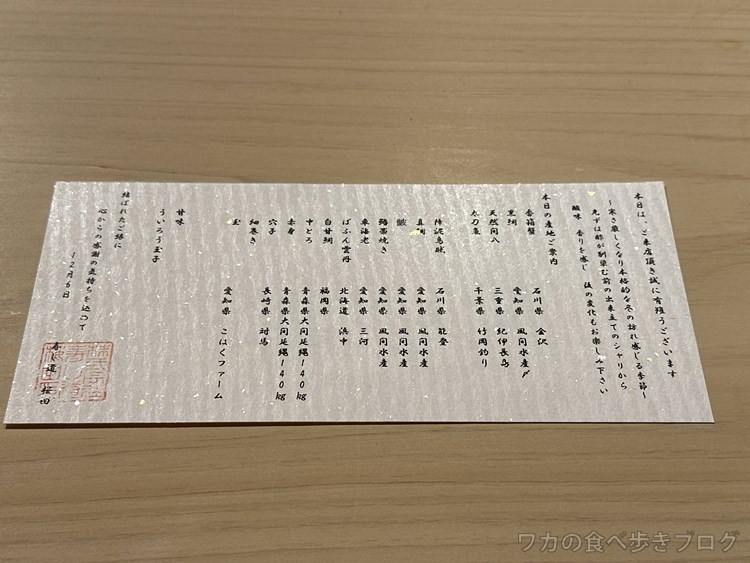 本日は、ご来店頂き誠に有難うございます
～寒さ厳しくなり本格的な冬の訪れ感じる季節～
先ずは酢が馴染む前の出来立てのシャリから
酸味 香りを感じ 後の変化もお楽しみ下さい
本日の産地ご案内
香箱蟹 石川県 金沢
黒鯛 愛知県 風間水産〆
天然間八 三重県 紀伊長島
太刀魚 千葉県 竹岡釣り
障泥烏賊 石川県 能登
真鯛 愛知県 風間水産
愛知県 風間水産
鰆蒂焼き 愛知県 風間水産
車海老 愛知県 三河
ばふん雲丹 北海道 浜中
白甘鯛 福岡県
中とろ 青森県大間延縄140kg
赤身 青森県大間延縄140kg
穴子 長崎県 対馬
細巻き
玉 愛知県 こはくファーム
甘味
ういろう玉子
結ばれたご縁に
心からの感謝の気持ちを込めて
12月6日
寿し道 桜田
ワカの食べ歩きブログ